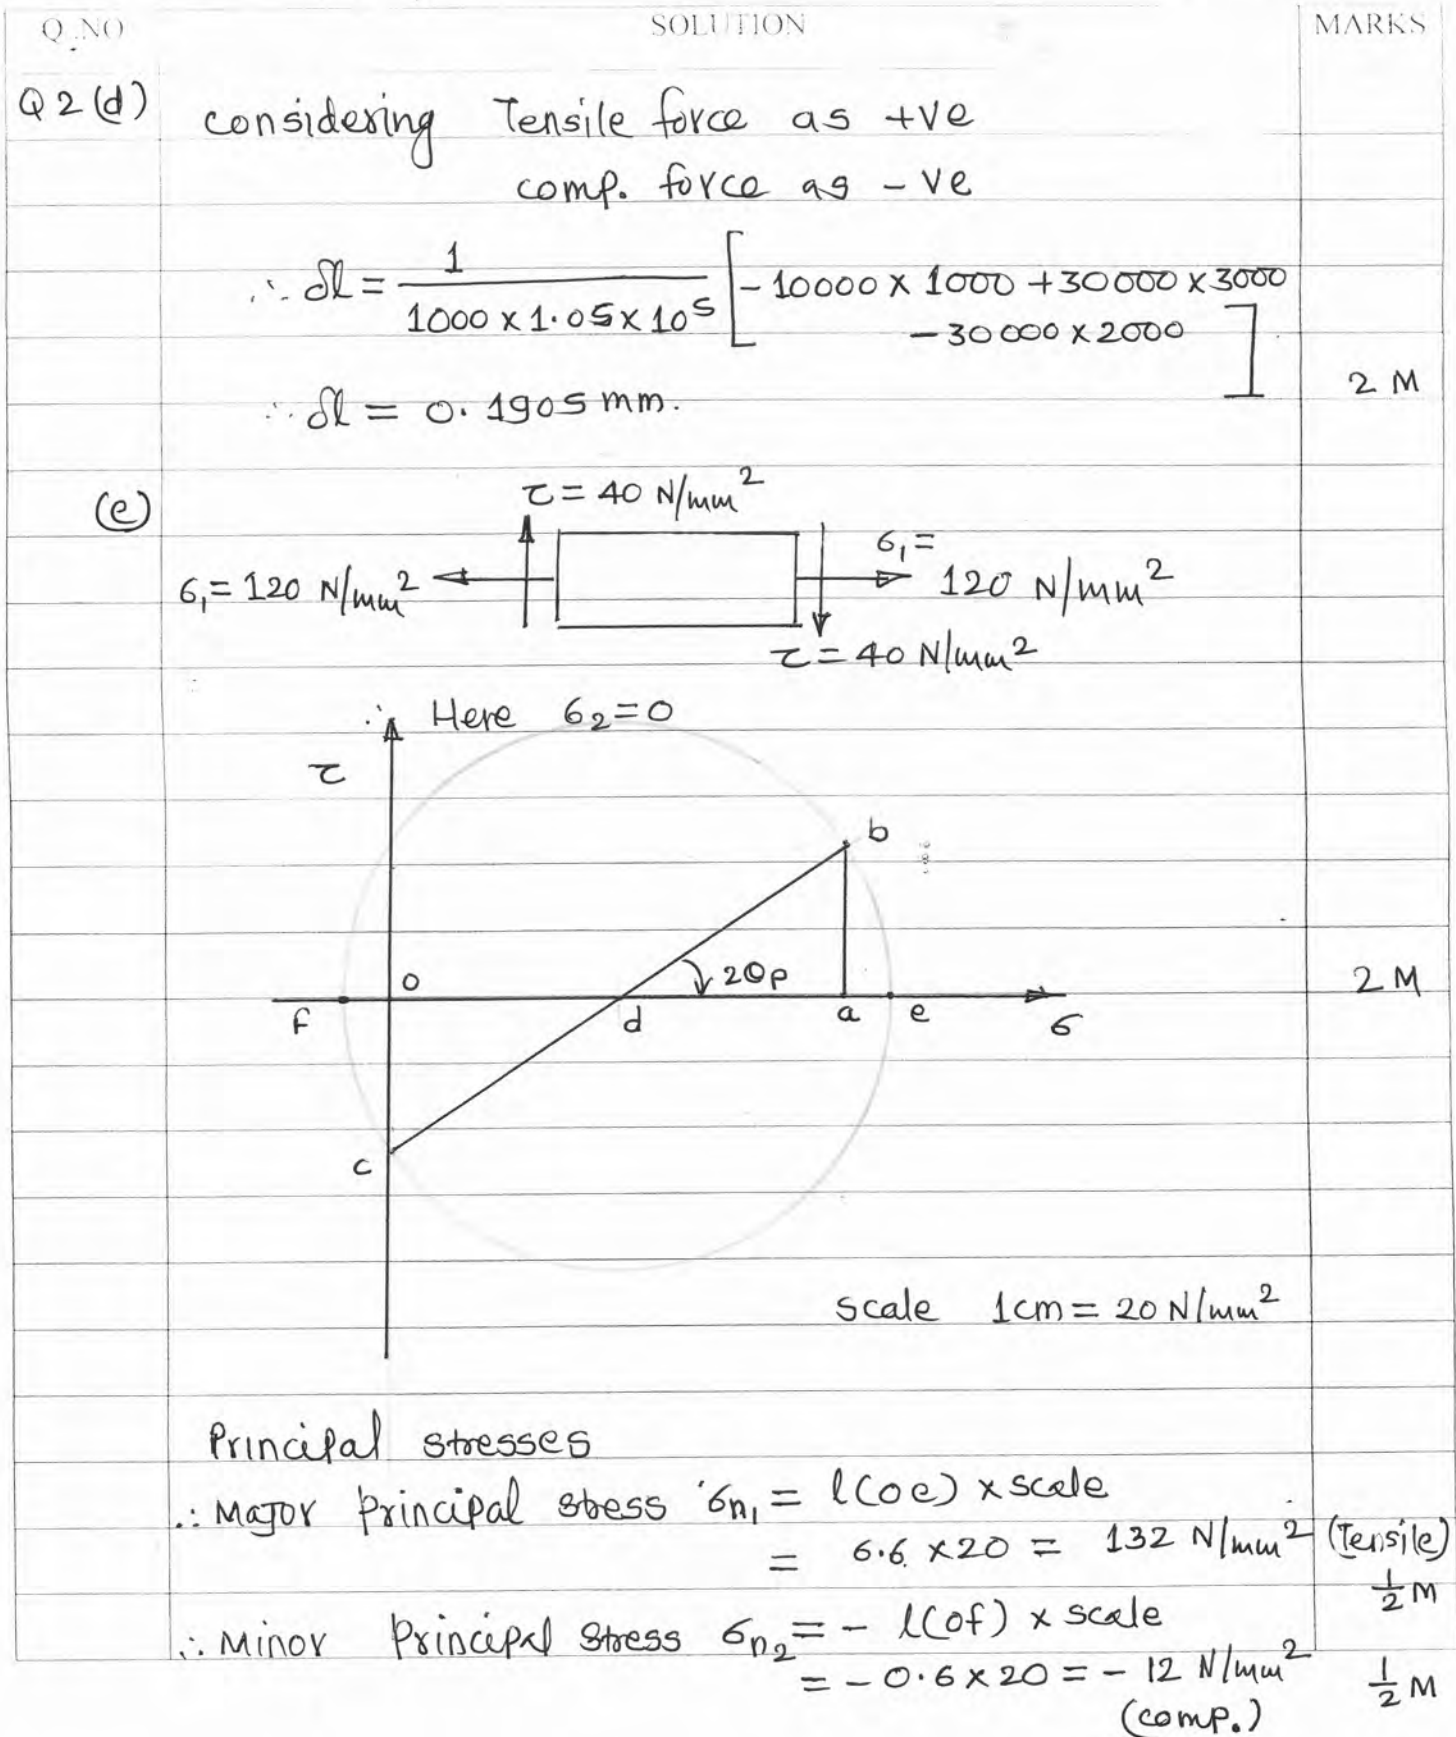 Q.NO SOLUTION MARKS
Q 2 (d) considering Tensile force as +ve
comp. force as -ve
∴ δl = 1 / 1000 × 1.05 × 10^5 [ - 10000 × 1000 + 30000 × 3000
- 30000 × 2000 ]
2 M
∴ δl = 0.1905 mm.
(e)
τ = 40 N/mm²
σ₁ = 120 N/mm²
σ₁ =
120 N/mm²
τ = 40 N/mm²
∴ Here σ₂ = 0
τ
b
o
2θp
2 M
f
d
a
e
σ
c
scale 1cm = 20 N/mm²
Principal stresses
∴ Major principal stress σn₁ = l(oe) × scale
= 6.6 × 20 = 132 N/mm² (Tensile)
½ M
∴ Minor Principal stress σn₂ = - l(of) × scale
= - 0.6 × 20 = - 12 N/mm²
½ M
(comp.)